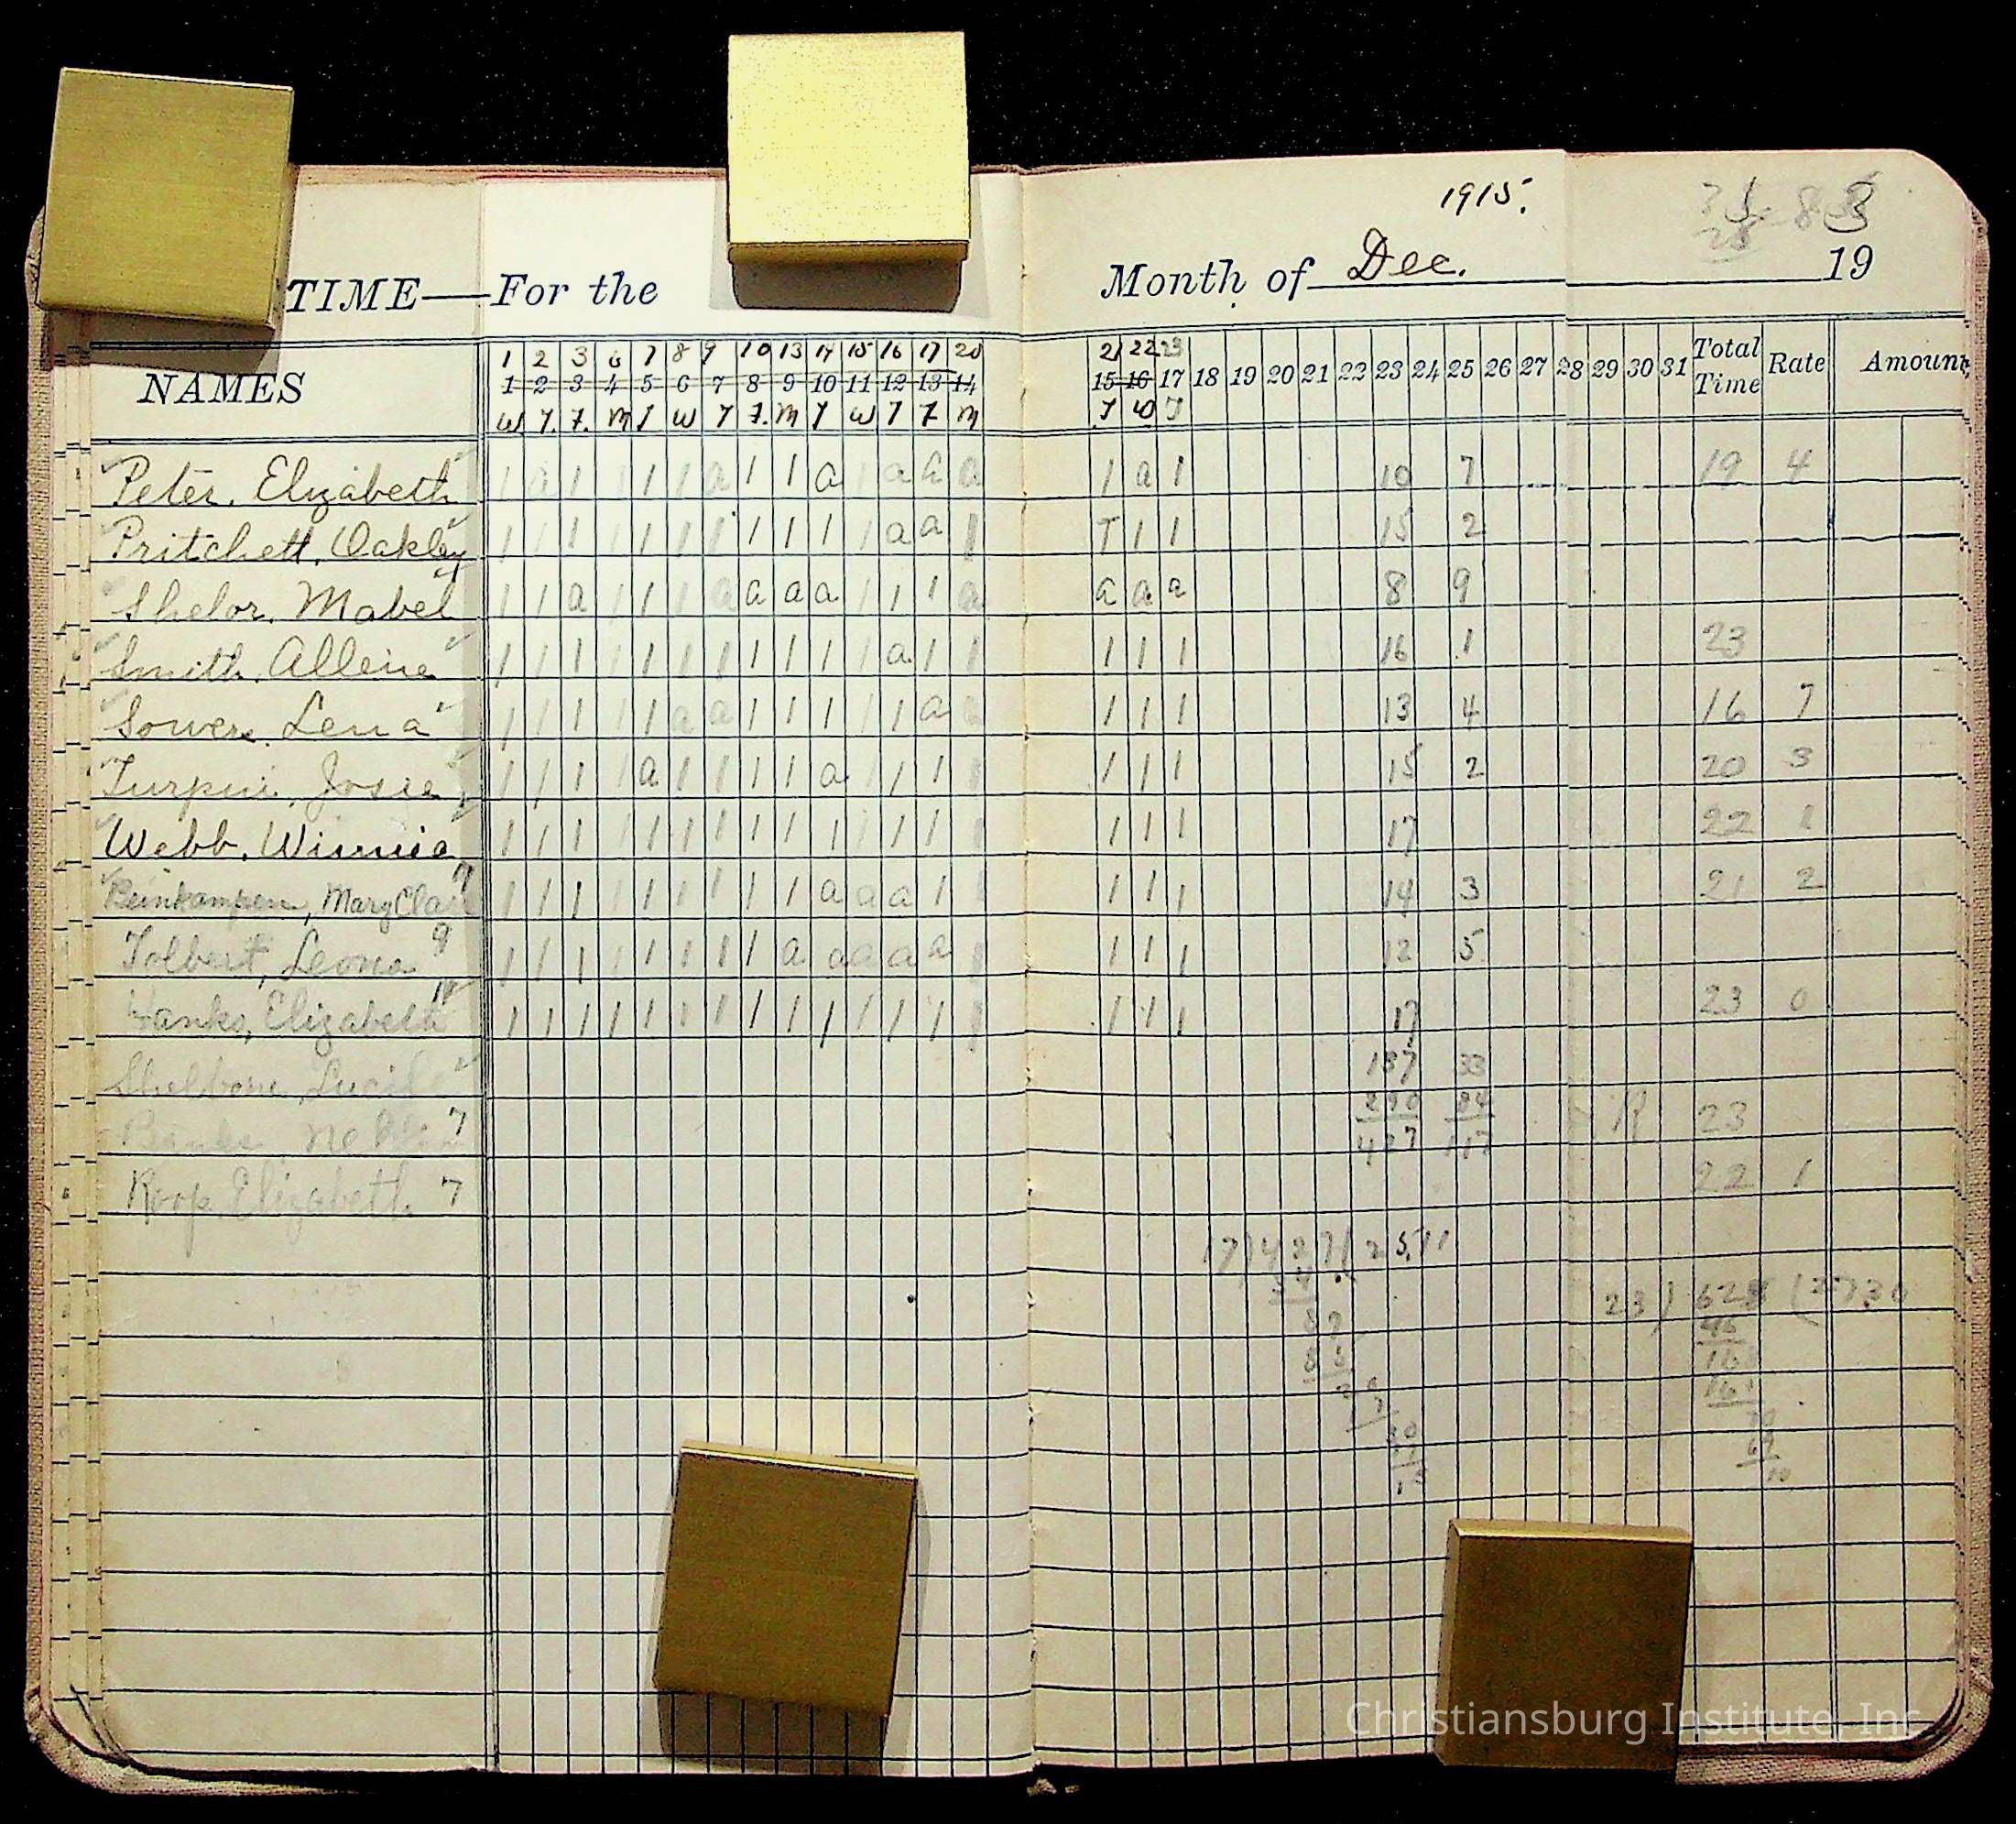 1915.
TIME—For the Month of Dec. 19
1 2 3 6 7 8 9 10 13 14 15 16 17 20 21 22 23
NAMES 1 2 3 4 5 6 7 8 9 10 11 12 13 14 15 16 17 18 19 20 21 22 23 24 25 26 27 28 29 30 31 Total Time Rate Amount
W T. F. M T W T F. M T W T F M T W T
Peter, Elizabeth 1 a 1 1 1 1 a 1 1 a 1 a a a 1 a 1 10 7 19 4
Pritchett, Oakley 1 1 1 1 1 1 1 1 1 1 1 a a 1 T 1 1 15 2
Shelor, Mabel 1 1 a 1 1 1 a a a a 1 1 1 a a a a 8 9
Smith, Allene 1 1 1 1 1 1 1 1 1 1 1 a 1 1 1 1 1 16 1 23
Sowers, Lena 1 1 1 1 1 a a 1 1 1 1 1 a a 1 1 1 13 4 16 7
Turpin, Josie 1 1 1 1 a 1 1 1 1 a 1 1 1 1 1 1 1 15 2 20 3
Webb, Winnie 1 1 1 1 1 1 1 1 1 1 1 1 1 1 1 1 1 17 22 1
Mary 1 1 1 1 1 1 1 1 1 a a a 1 1 1 1 1 14 3 21 2
Tolbert, Leona 9 1 1 1 1 1 1 1 1 a a a a a 1 1 1 1 12 5
Hanks, Elizabeth 1 1 1 1 1 1 1 1 1 1 1 1 1 1 1 1 1 17 23 0
Lucile 137 33
7 290 84 23
427 117
Roop, Elizabeth 7 22 1
17)427(25.11
23)628(27.30
Christiansburg Institute, Inc.